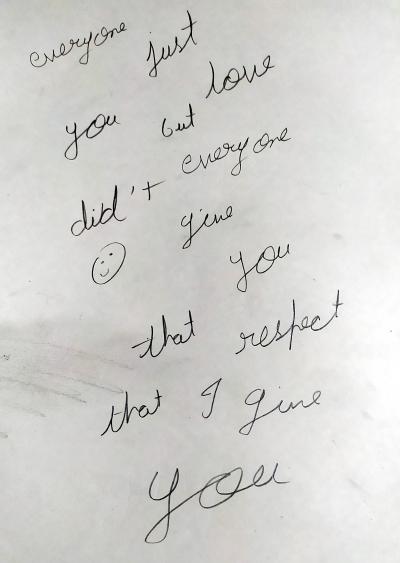 everyone just
you love
but
did't everyone
give
you
that respect
that I give
you